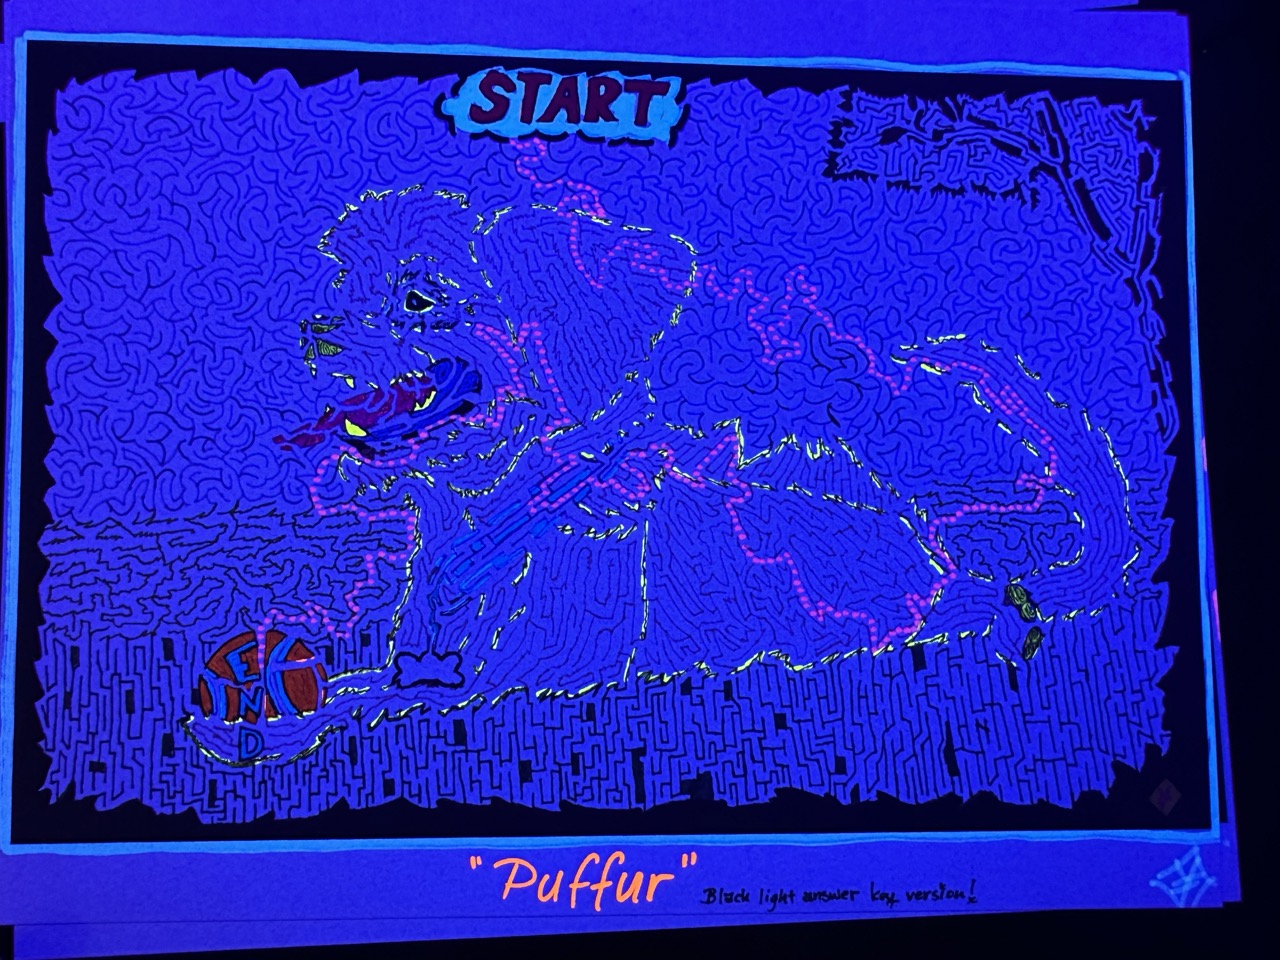 START
END
"Puffur"
Black light answer key version!